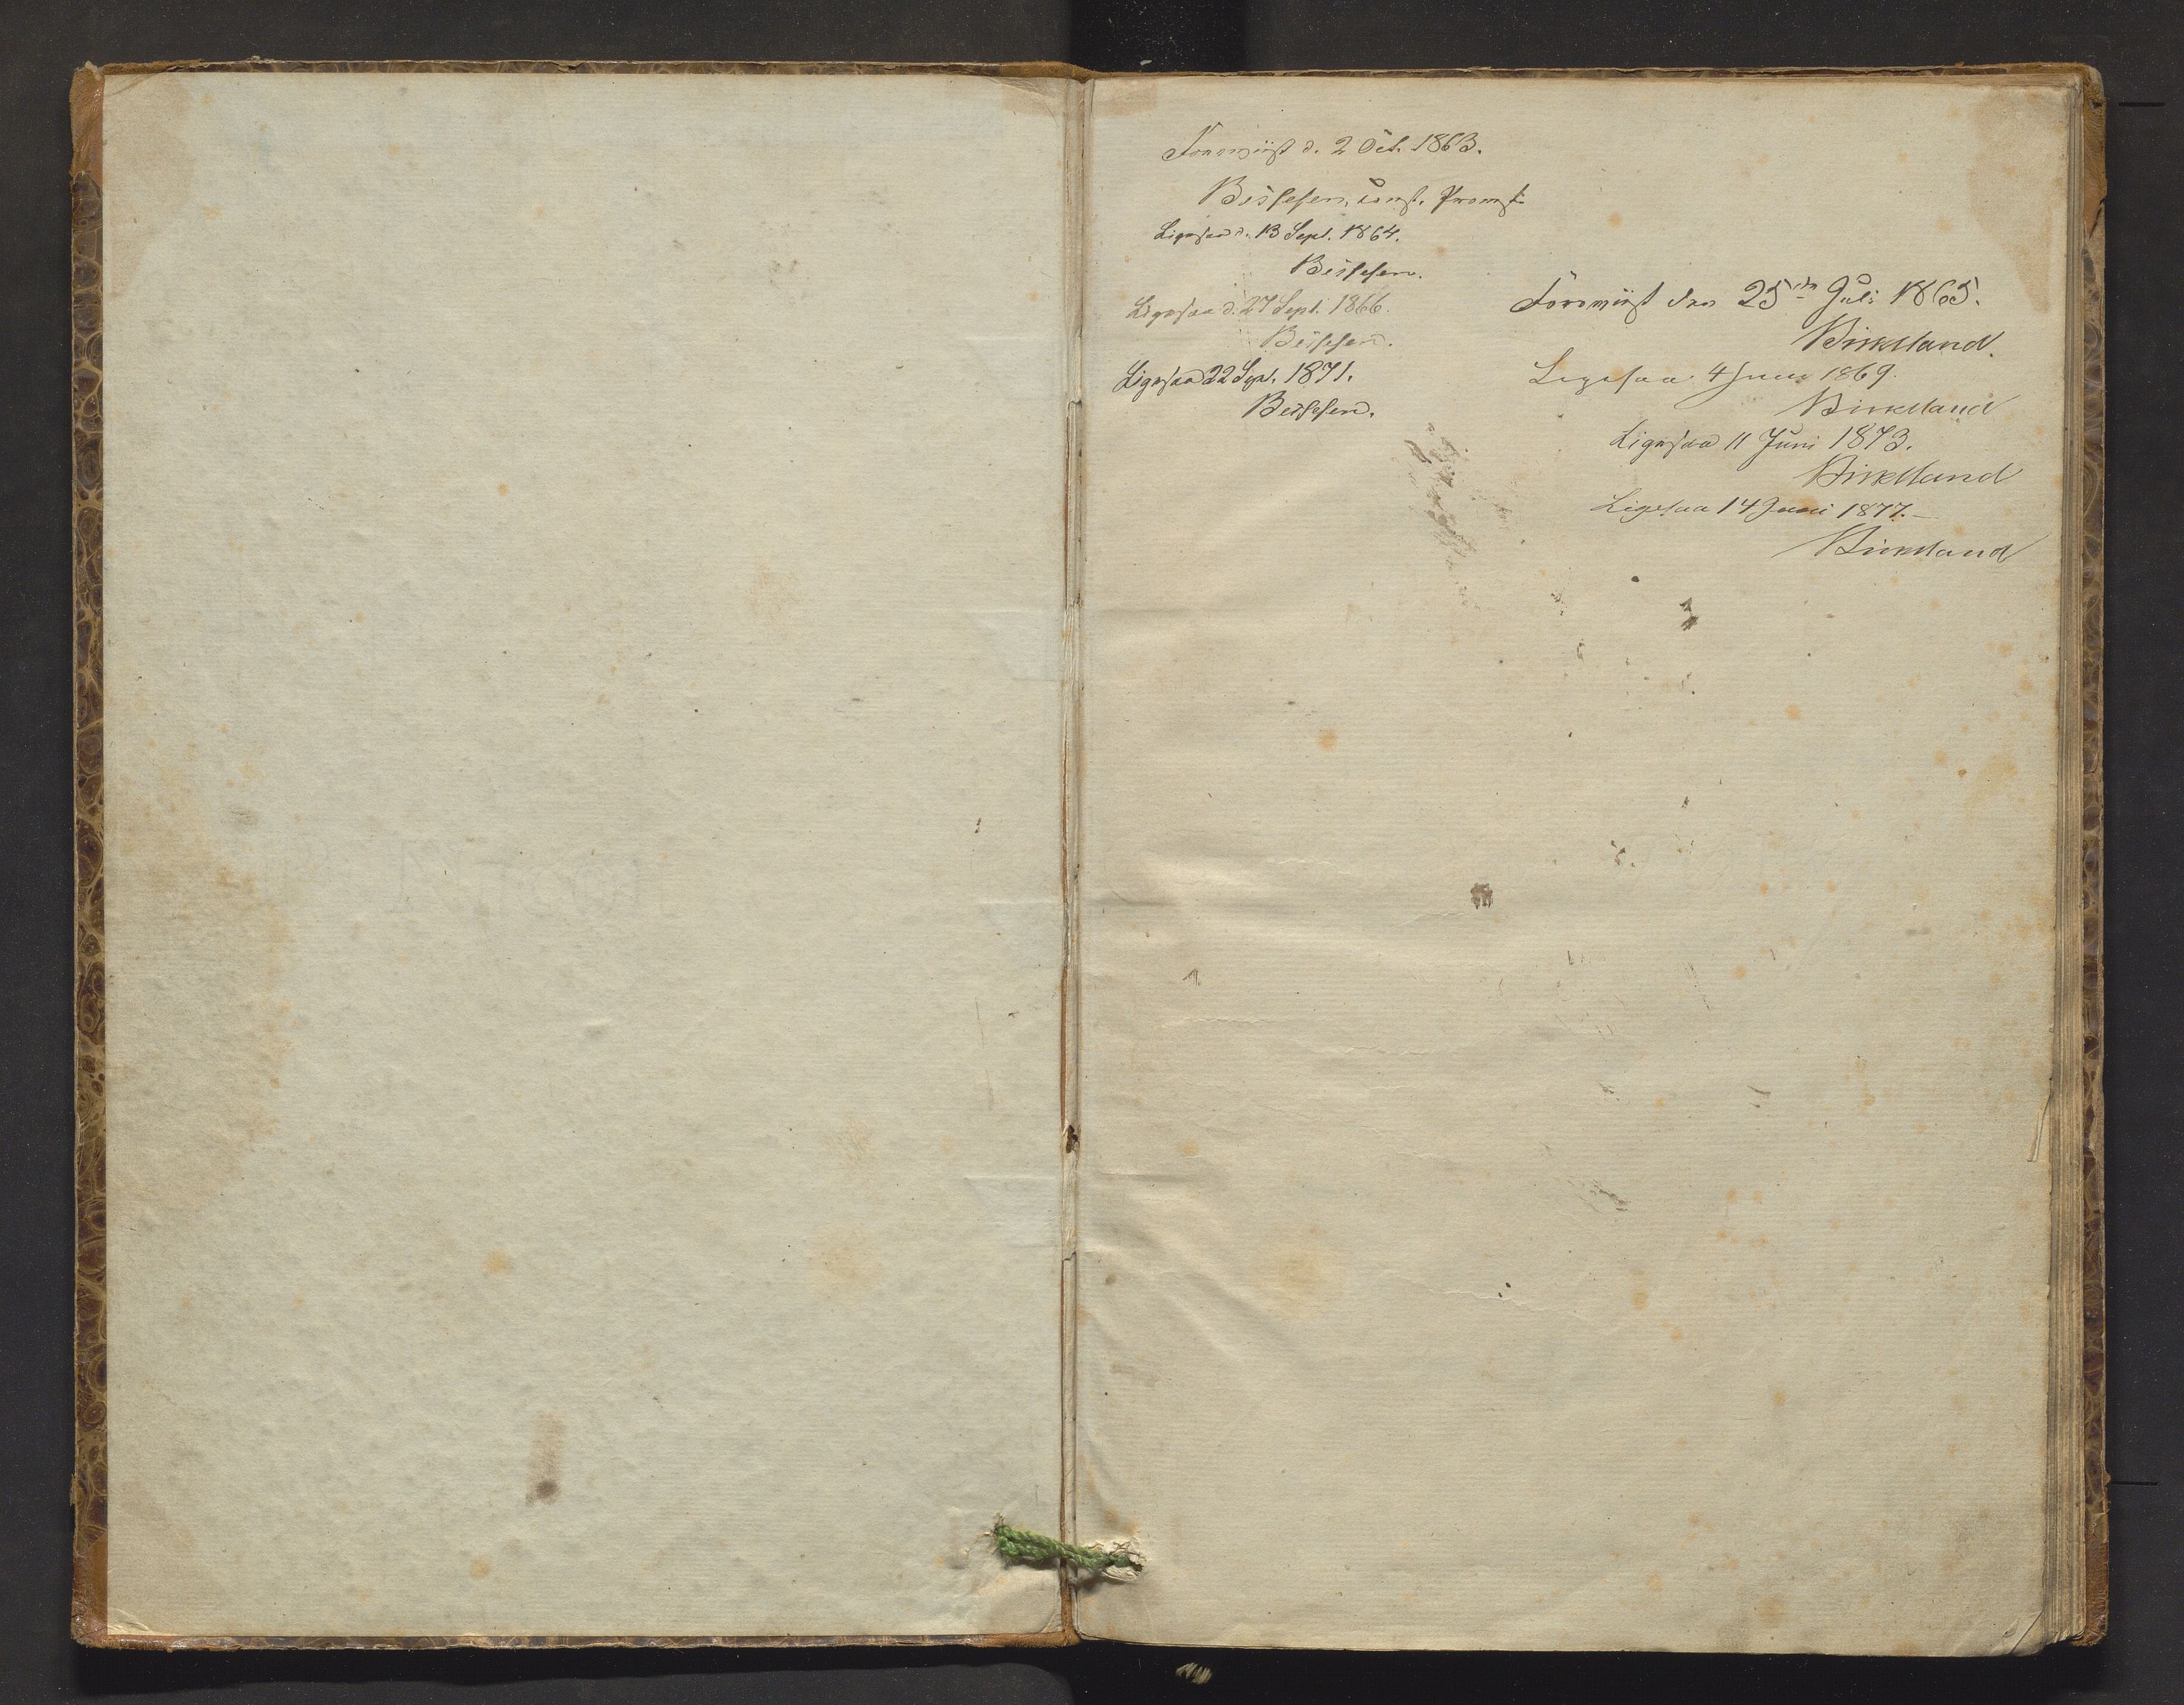 Foreviist d. 2 Oct. 1863.
Beissesen, const. Provst.
Ligesaa d. 13 Sept. 1864.
Beissesen.
Ligesaa d. 27 Sept. 1866.
Beissesen.
Ligesaa 22 Sept. 1871.
Beissesen.
Foreviist den 25de Juli 1865.
Birkeland.
Ligesaa 4 Juni 1869.
Birkeland
Ligesaa 11 Juni 1873.
Birkeland
Ligesaa 14 Juni 1877.—
Birkeland